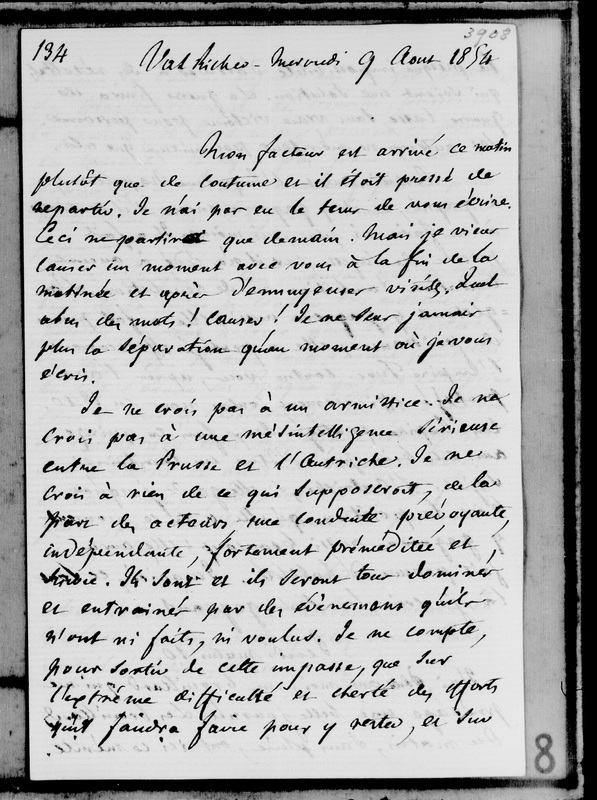 3903
134 Val Richer - Mercredi 9 Aout 1854
Mon facteur est arrivé ce matin
plutôt que de coutume et il étoit pressé de
repartir. Je n'ai pas eu le tems de vous écrire.
Ceci ne partira que demain. Mais je viens
causer un moment avec vous à la fin de la
matinée et après d'ennuyeuses visites. Quel
abus des mots ! Causer ! Je ne sens jamais
plus la séparation qu'au moment où je vous
écris.
Je ne crois pas à un armistice. Je ne
crois pas à une mésintelligence sérieuse
entre la Prusse et l'Autriche. Je ne
crois à rien de ce qui supposeroit, de la
part des acteurs une conduite prévoyante,
indépendante, fortement préméditée et
suivie. Ils sont et ils seront tous dominés
et entrainés par des évènemens qu'ils
n'ont ni faits, ni voulus. Je ne compte,
pour sortir de cette impasse, que sur
l'extrême difficulté et cherté des efforts
qu'il faudra faire pour y rester, et sur
8